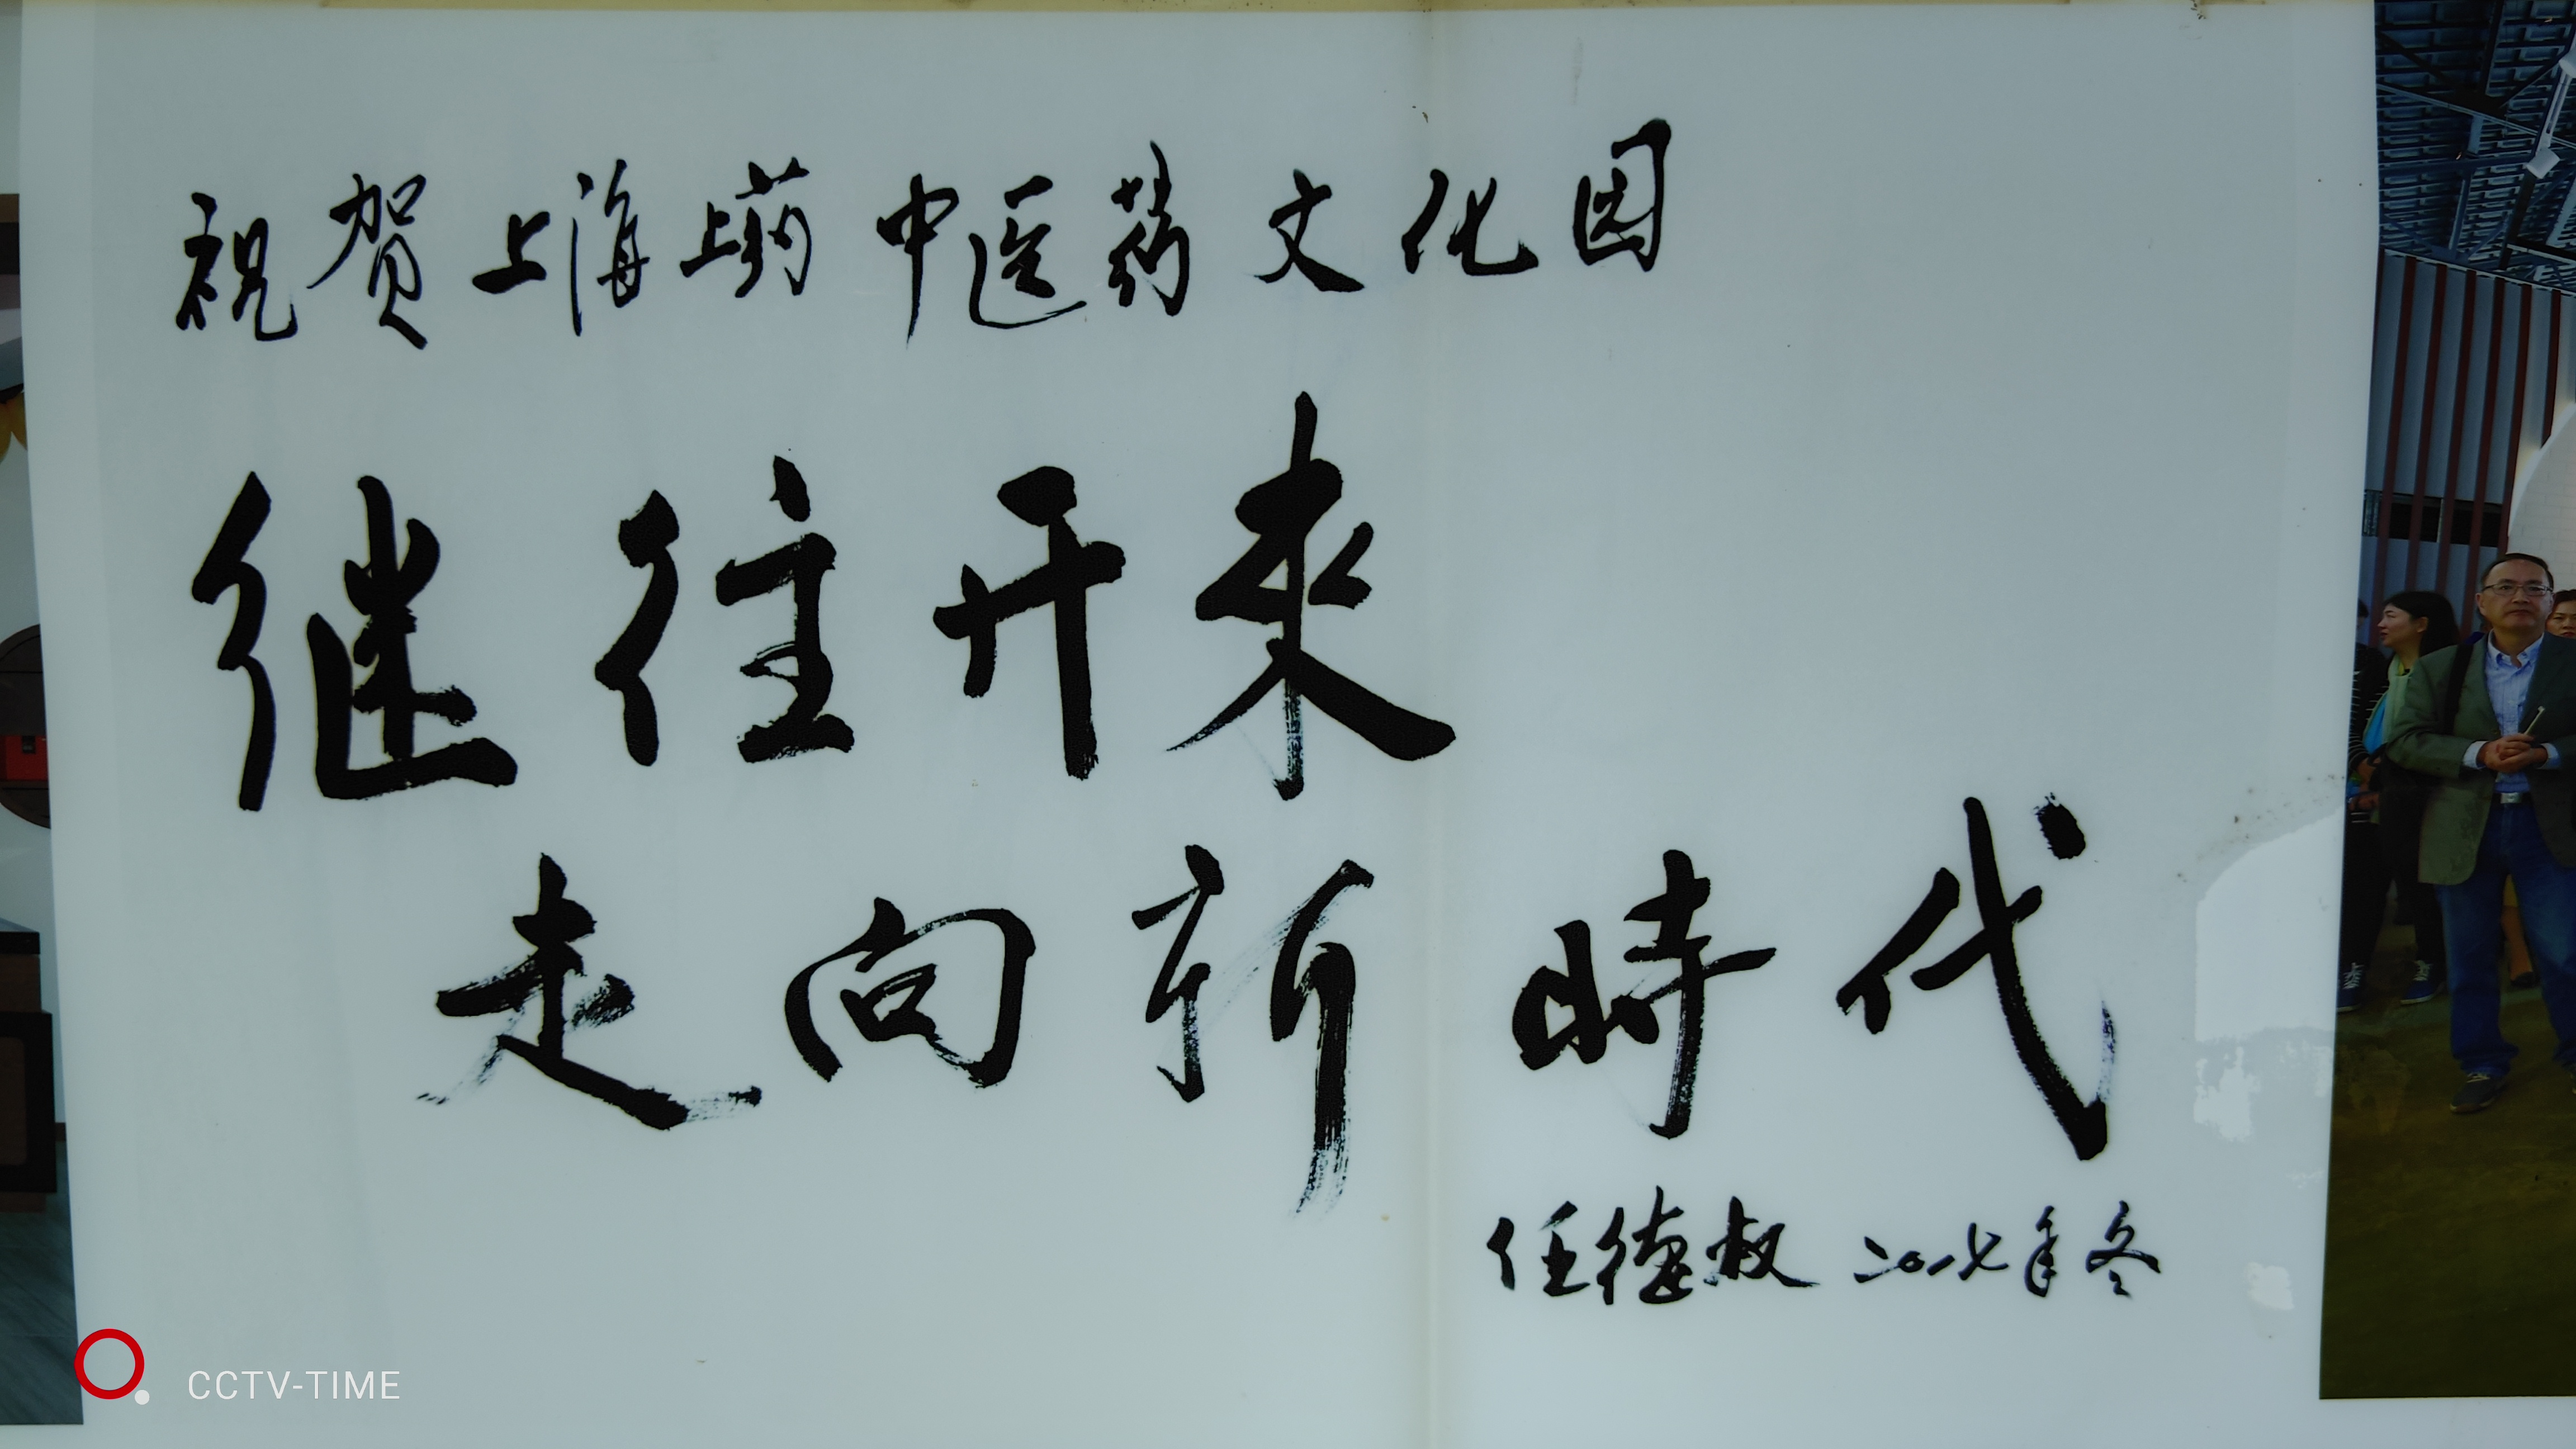 祝贺上海上药中医药文化园
继往开來
走向新時代
任德权 二〇一七年冬
CCTV-TIME